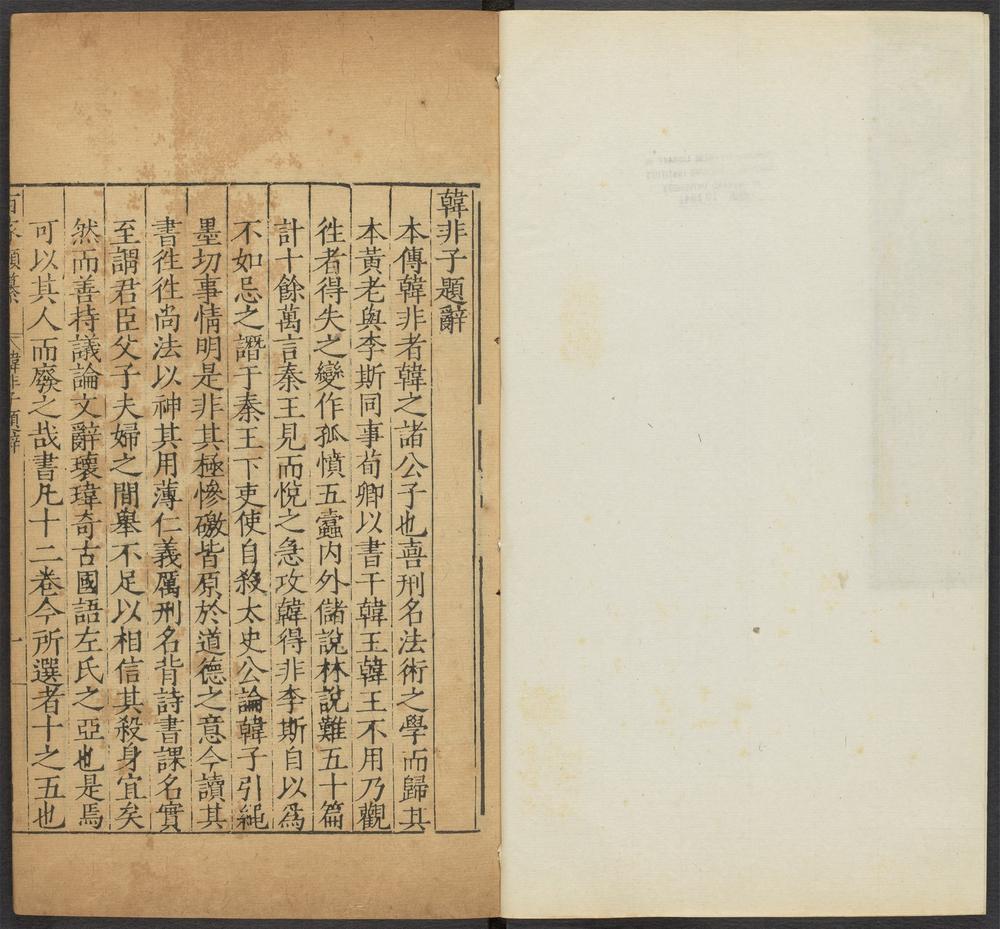 韓非子題辭
本傳韓非者韓之諸公子也喜刑名法術之學而歸其
本黃老與李斯同事荀卿以書干韓王韓王不用乃觀
徃者得失之變作孤憤五蠹内外儲說林說難五十篇
計十餘萬言秦王見而悅之急攻韓得非李斯自以爲
不如忌之譖于秦王下吏使自殺太史公論韓子引繩
墨切事情明是非其極慘礉皆原於道德之意今讀其
書徃徃尚法以神其用薄仁義厲刑名背詩書課名實
至謂君臣父子夫婦之間舉不足以相信其殺身宜矣
然而善持議論文辭瓌瑋奇古國語左氏之亞也是焉
可以其人而廢之哉書凡十二卷今所選者十之五也
韓非子題辭
一